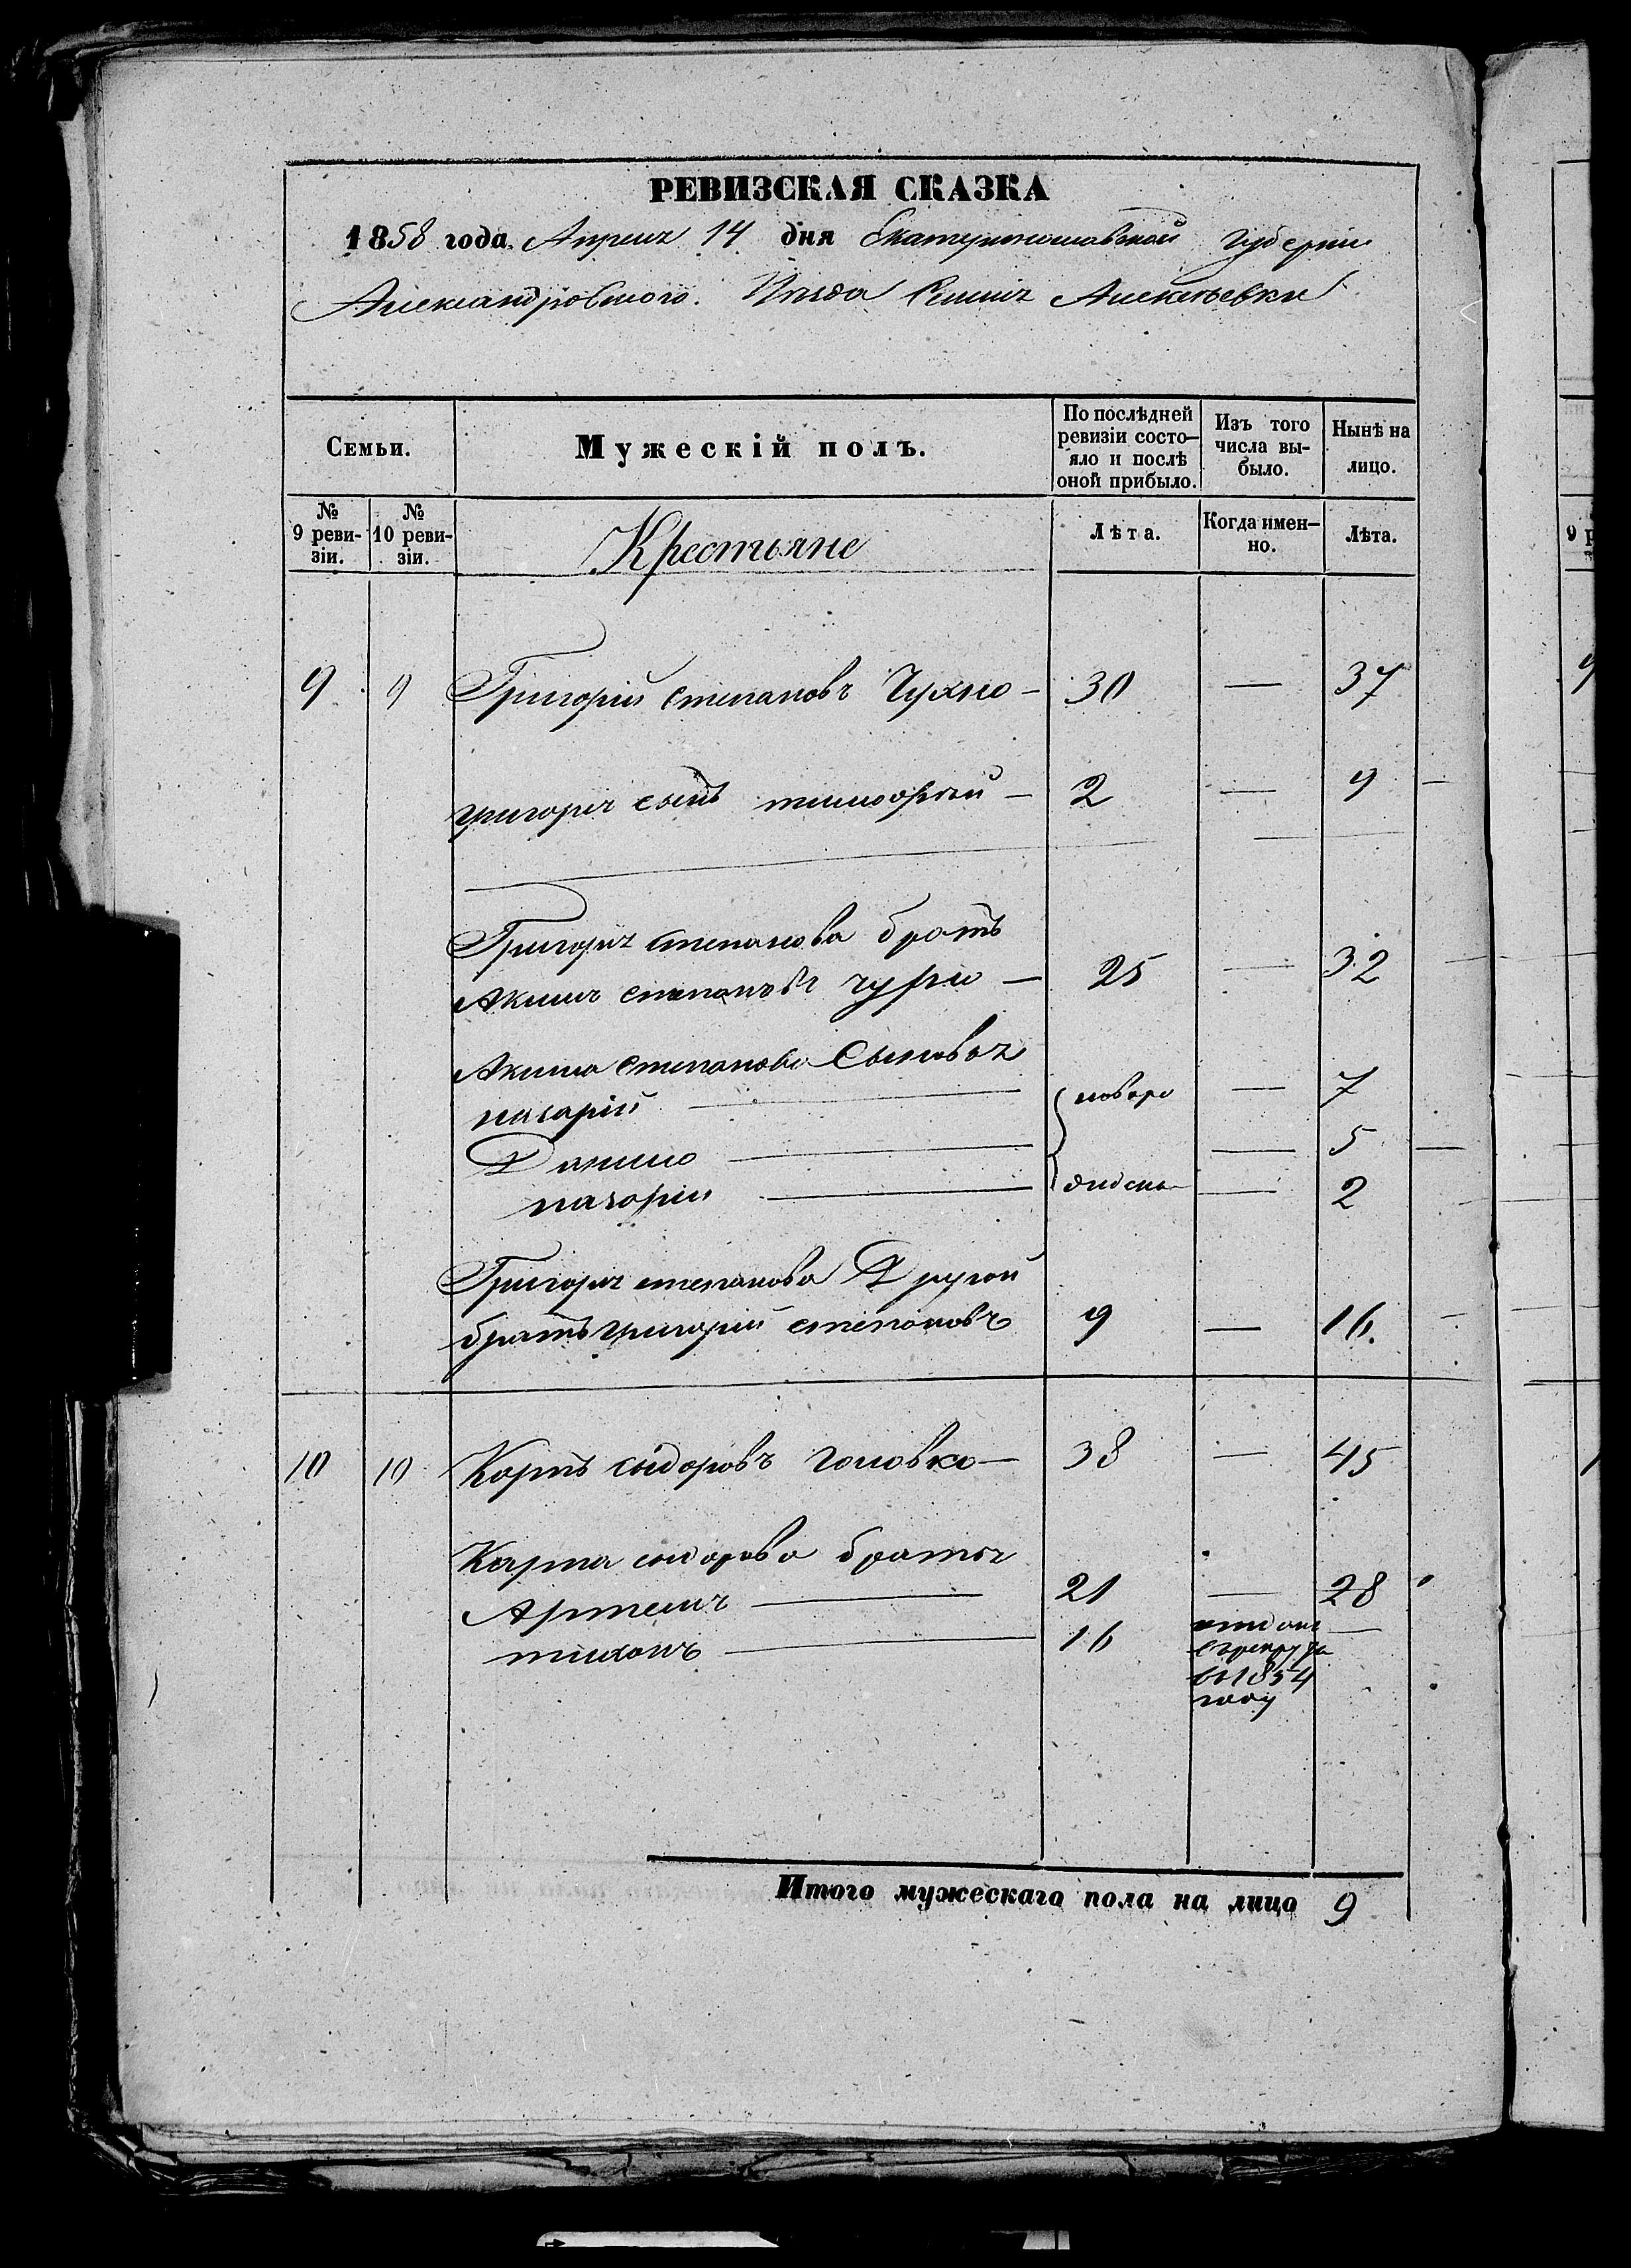 РЕВИЗСКАЯ СКАЗКА
1858 года Апреля 14 дня Екатеринославской Губерніи
Александровского Уезда Селения Алексеевки
Семьи.
Мужескій полъ.
По послѣдней ревизіи состояло и послѣ оной прибыло.
Изъ того числа выбыло.
Нынѣ на лицо.
№ 9 ревизіи.
№ 10 ревизіи.
Крестьяне
Лѣта.
Когда именно.
Лѣта.
9 9 Григорій Степановъ Чухно — 30 — 37
Григорія сынъ тимофей — 2 — 9
Григорія степанова братъ
Акимъ степановъ — 25 — 32
Акима степанова Сыновья
— новоро — 7
Данило — — 5
— дились — 2
Григорія степанова Другой
братъ григорій степановъ 9 — 16.
10 10 Карпъ сидоровъ головко — 38 — 45
Карпа сидорова братья
Артемъ — 21 — 28
тихонъ — 16 отданъ —
въ рекруты
въ 1854
году
Итого мужескаго пола на лицо 9